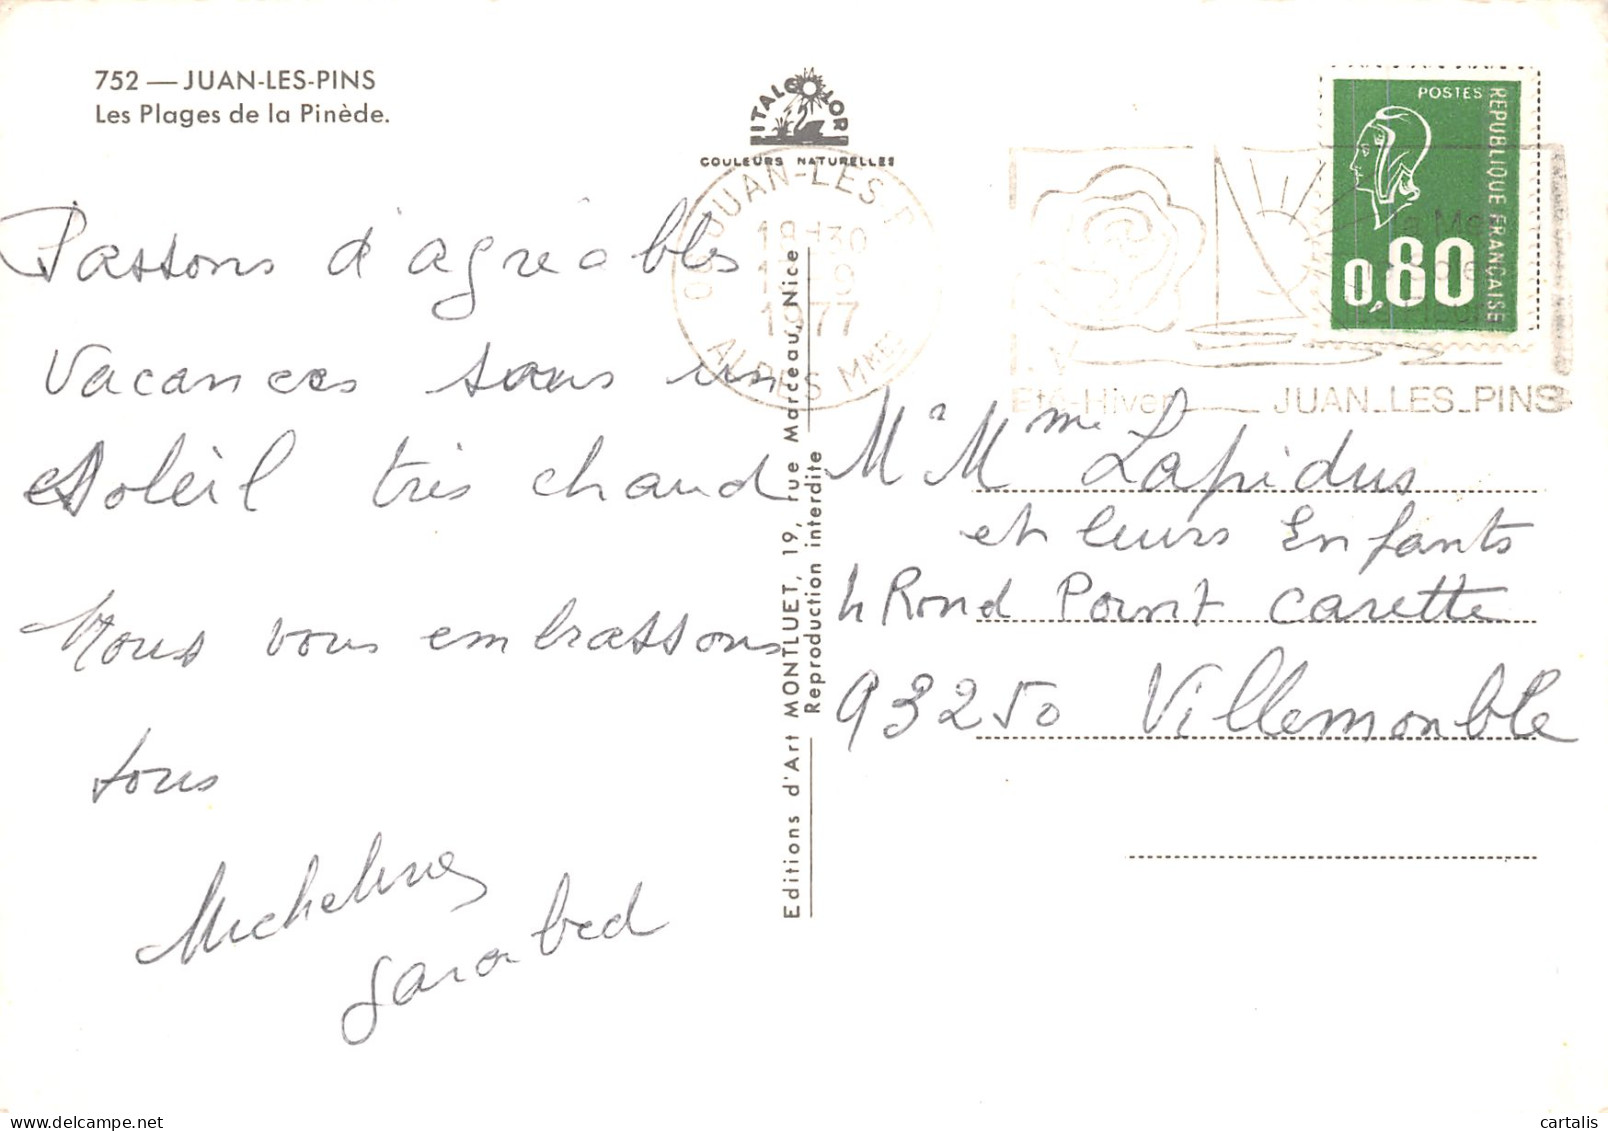 752 — JUAN-LES-PINS
Les Plages de la Pinède.
ITALCOLOR
COULEURS NATURELLES
JUAN-LES-P
18H30
1977
ALPES MMES
POSTES
REPUBLIQUE FRANÇAISE
0,80
Eté-Hiver JUAN_LES_PINS
Passons d'agréables
vacances sous un
soleil très chaud
Nous vous embrassons
tous
Micheline
Garabed
Editions d'Art MONTLUET, 19, rue Marceau, Nice
Reproduction interdite
M. Mme Lapidus
et leurs Enfants
4 Rond Point Carette
93250 Villemomble
cartalis